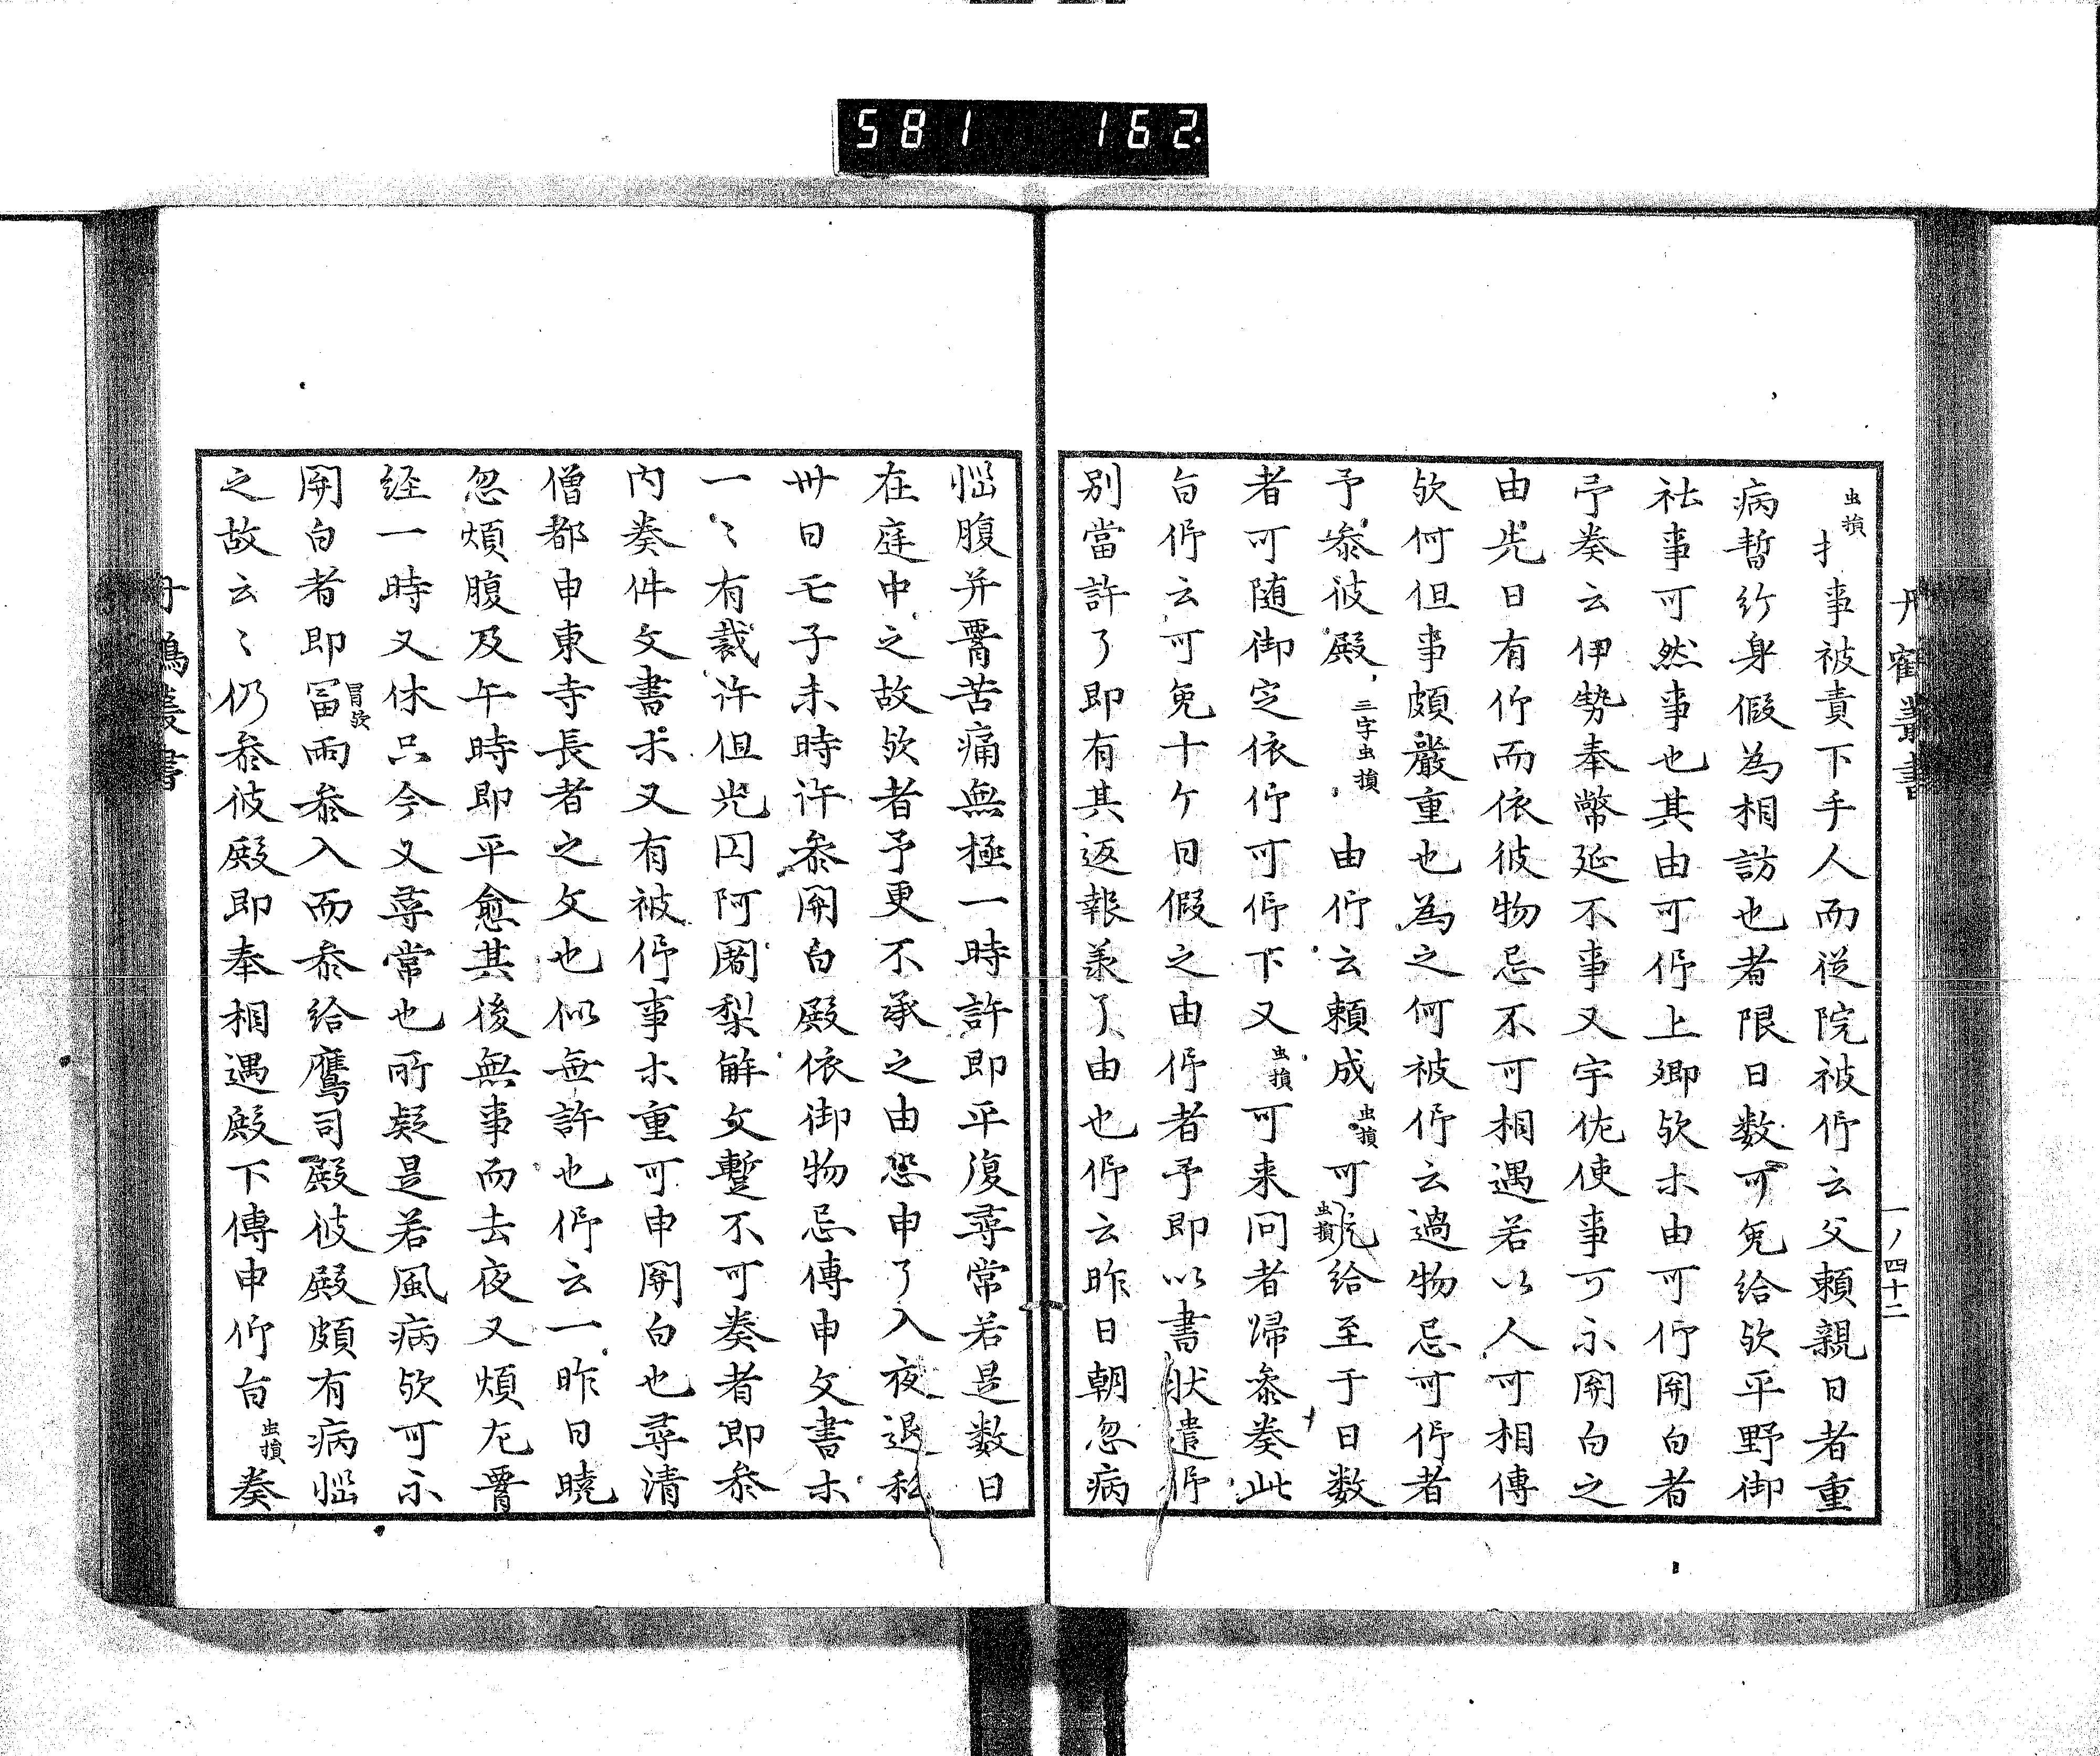 581 162
丹鶴叢書
一ノ四十二
虫損扌事被責下手人而従院被仰云父頼親日者重
病暫行身假為相訪也者限日数可免給欤平野御
社事可然事也其由可仰上卿欤木由可仰関白者
予奏云伊勢奉幣延不事又宇佐使事可示関白之
由先日有仰而依彼物忌不可相遇若以人可相傳
欤何但事頗嚴重也為之何被仰云過物忌可仰者
予参彼殿三字虫損由仰云頼成虫損可虫損給至于日数
者可随御定依仰可仰下又虫損可来问者帰参奏此
旨仰云可免十ケ日假之由仰者予即以書状遣仰
別當許了即有其返報義了由也仰云昨日朝忽病
悩腹并胷苦痛無極一時許即平復尋常若是数日
在庭中之故欤者予更不承之由恐申了入夜退私
卅日壬子未時許参関白殿依御物忌傳申文書木
一〻有裁許但光円阿闍梨解文蹔不可奏者即参
内奏件文書木又有被仰事木重可申関白也尋清
僧都申東寺長者之文也似無許也仰云一昨日曉
忽煩腹及午時即平愈其後無事而去夜又煩左胷
経一時又休只今又尋常也所疑是若風病欤可示
関白者即冨冒欤雨参入而参給鷹司殿彼殿頗有病悩
之故云〻仍参彼殿即奉相遇殿下傳申仰旨虫損奏